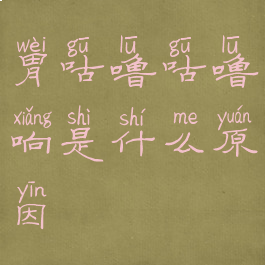 wèi gū lū gū lū
胃咕噜咕噜
xiǎng shì shí me yuán
响是什么原
yīn
因